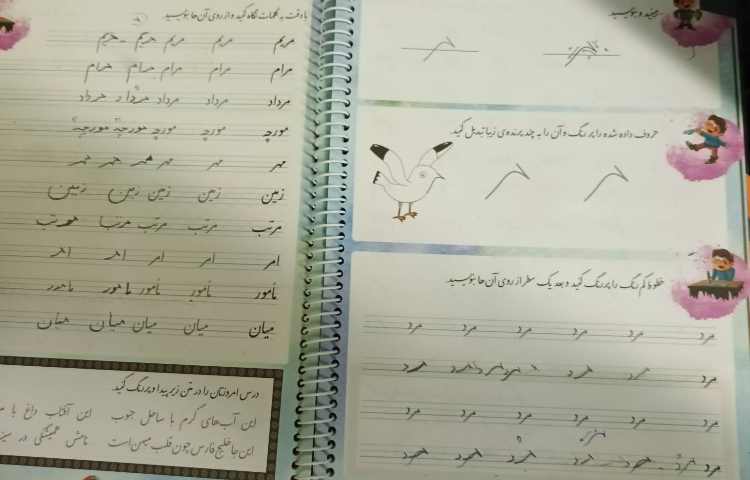 ببینید و بنویسید
حروف داده شده را پر رنگ و آن را به چند پرنده‌ی زیبا تبدیل کنید.
خطوط کم رنگ را پررنگ کنید و بعد یک سطر از روی آن ها بنویسید.
مرد مرد مرد مرد مرد مرد
مرد مرد
مرد مرد مرد مرد مرد مرد
مرد مرد
با دقت به کلمات نگاه کنید و از روی آن ها بنویسید.
مریم مریم مریم مریم مریم
مرام مرام مرام مرام مرام
مرداد مرداد مرداد مرداد مرداد
مورچه مورچه مورچه مورچه مورچه
مهر مهر مهر مهر مهر
زمین زمین زمین زمین زمین
مرتب مرتب مرتب مرتب مرتب
امر امر امر امر امر
مأمور مأمور مأمور مامور مامور
میان میان میان میان میان
درس امروزتان را در متن زیر پیدا و پررنگ کنید.
این آب‌های گرم با ساحل جنوب این آفتاب داغ با
این جا خلیج فارس چون قلب میهن است نامش همیشگی در